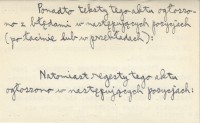 Ponadto teksty tego aktu ogłoszo-
no z błędami w następujących pozycjach
(po łacinie lub w przekładach):
Natomiast regesty tego aktu
ogłoszono w następujących pozycjach: